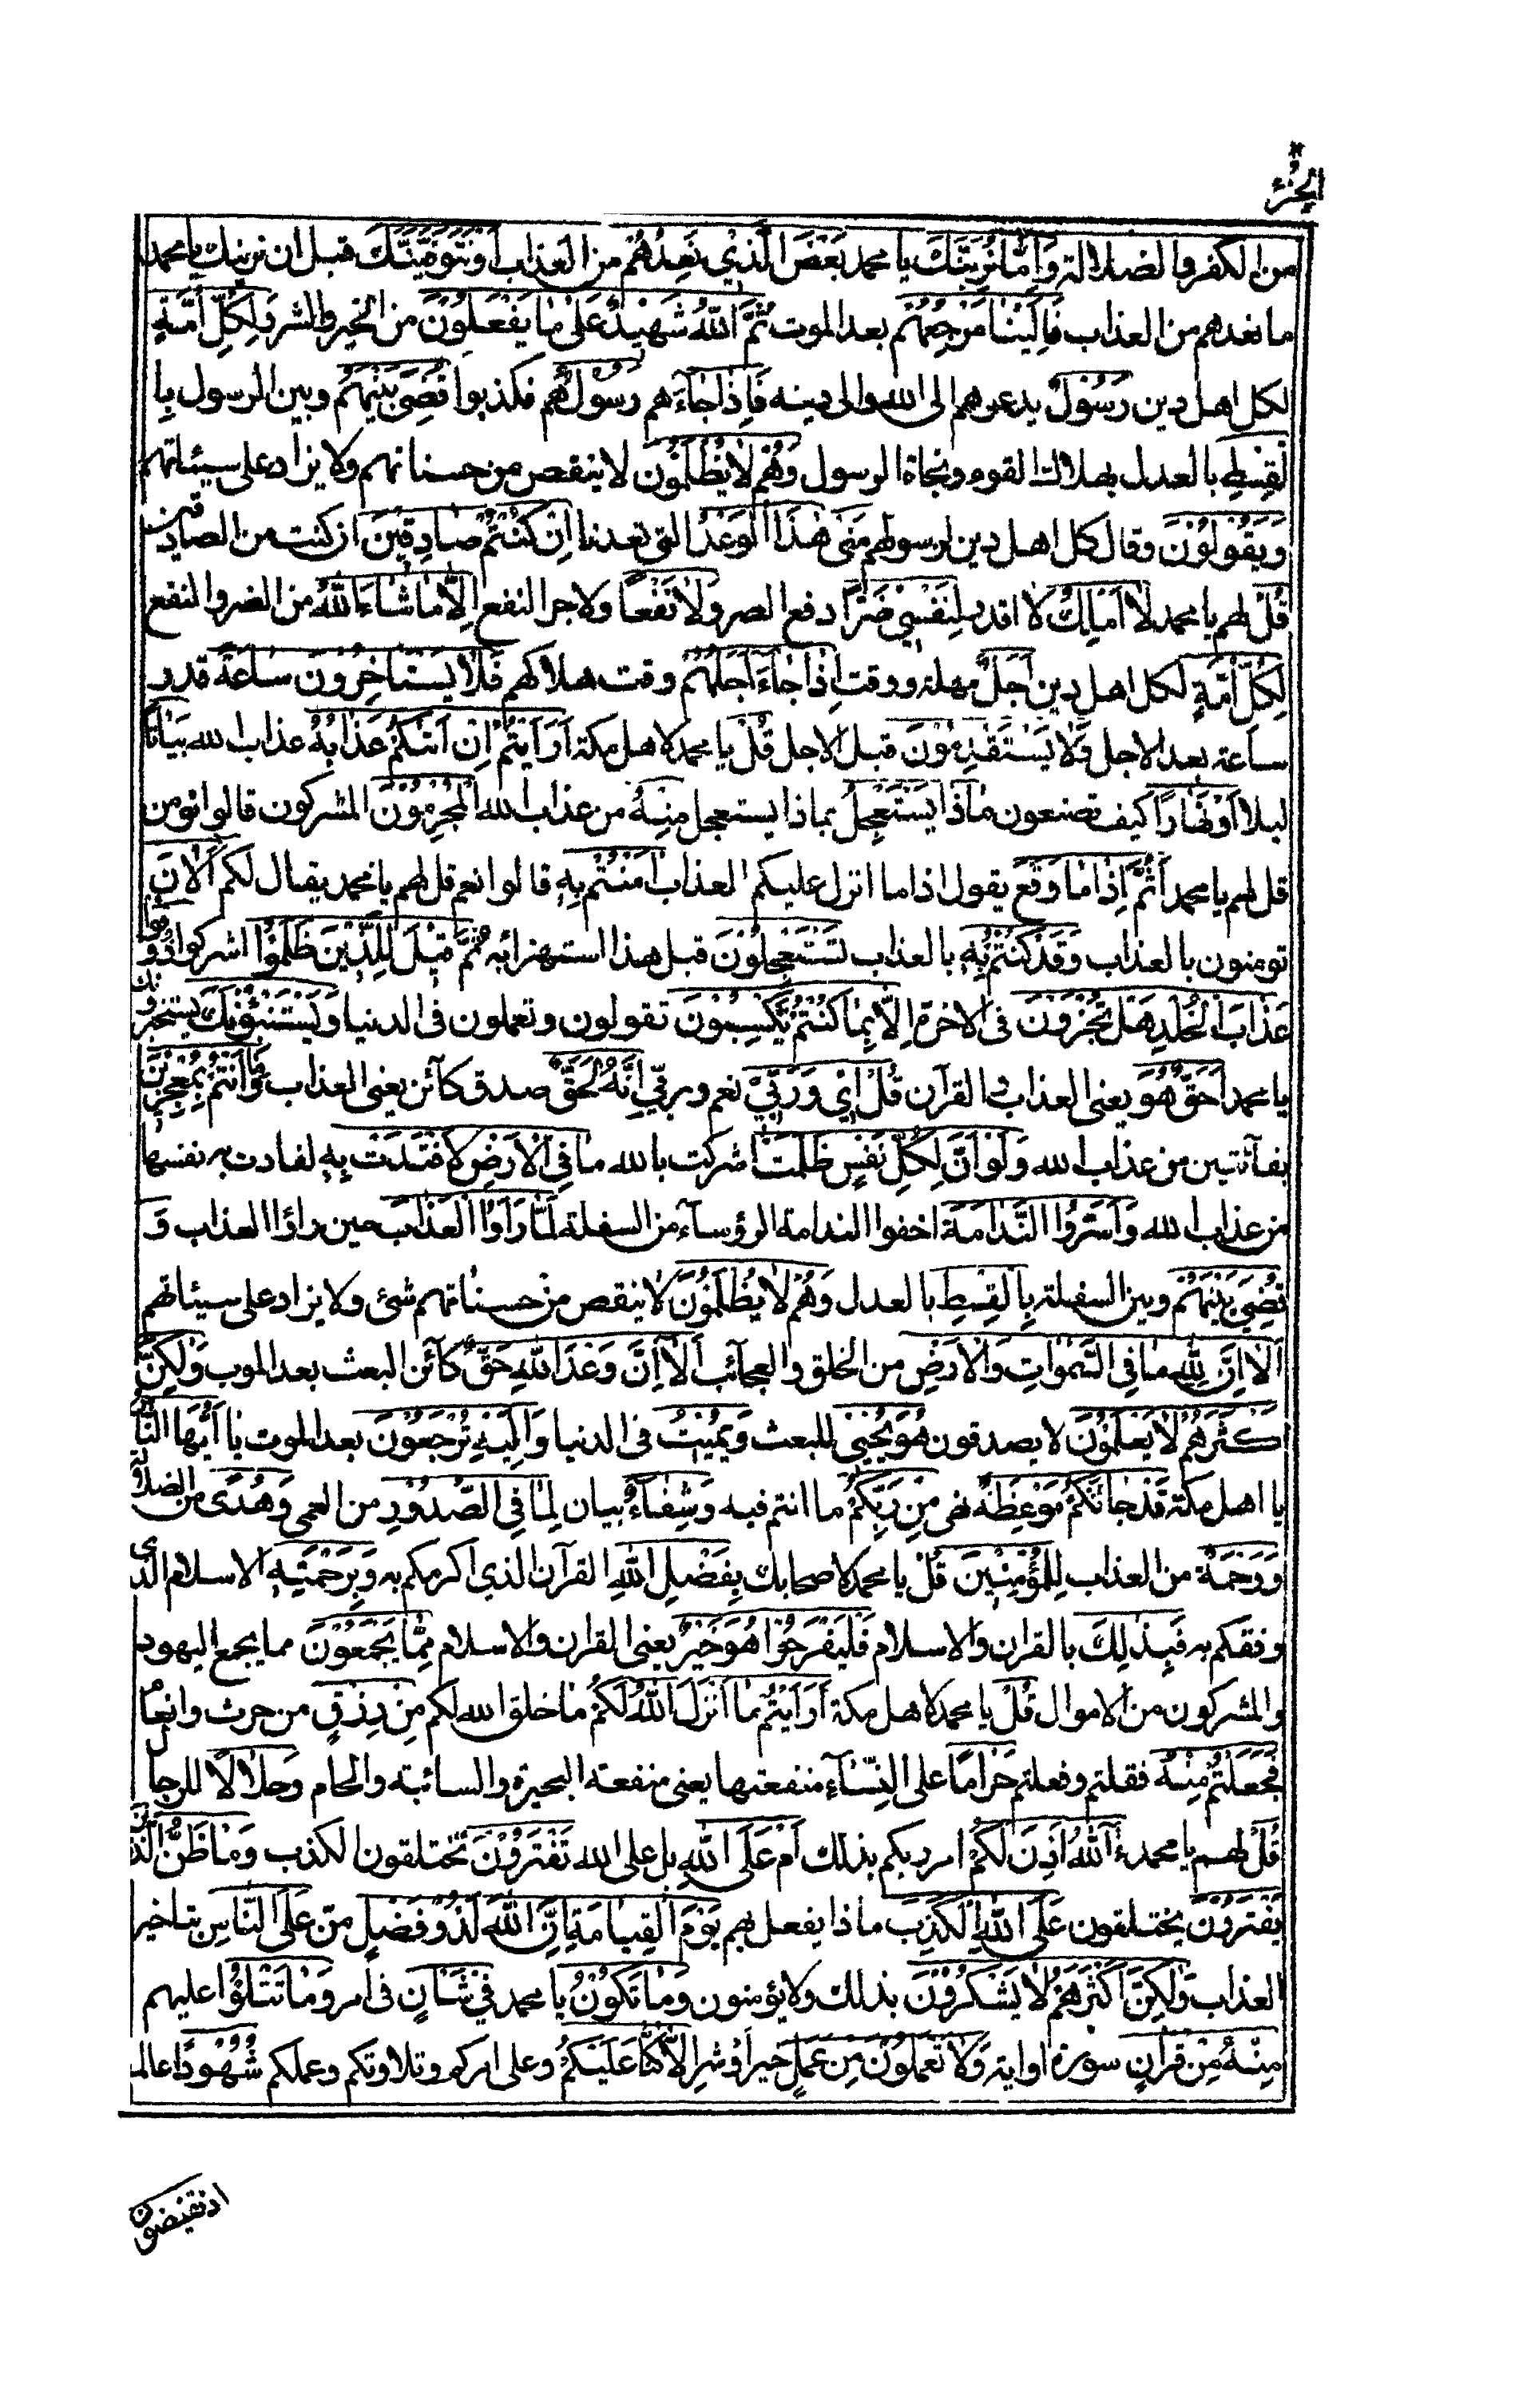 الجزء
من الكفر والضلالة وَاِمَّا نُرِيَنَّكَ يا محمد بَعْضَ الَّذِي نَعِدُهُمْ من العذاب اَوْ نَتَوَفَّيَنَّكَ قبل ان نرينك يا محمد
ما نعدهم من العذاب فَاِلَيْنَا مَرْجِعُهُمْ بعد الموت ثُمَّ اللّٰهُ شَهِيْدٌ عَلٰى مَا يَفْعَلُوْنَ من الخير والشر وَلِكُلِّ اُمَّةٍ
لكل اهل دين رَسُوْلٌ يدعوهم الى الله والى دينه فَاِذَا جَآءَ هم رسولهم فكذبوا قُضِيَ بَيْنَهُمْ وبين الرسول بِا
لْقِسْطِ بالعدل بهلاك القوم ونجاة الرسول وَهُمْ لَا يُظْلَمُوْنَ لا ينقص من حسناتهم ولا يزاد على سيئاتهم
وَيَقُوْلُوْنَ وقال كل اهل دين لرسولهم مَتٰى هٰذَا الْوَعْدُ التى تعدنا اِنْ كُنْتُمْ صَادِقِيْنَ ان كنت من الصادقين
قُلْ لهم يا محمد لَا اَمْلِكُ لا اقدر لِنَفْسِيْ ضَرًّا دفع الضر وَلَا نَفْعًا ولا جر النفع اِلَّا مَا شَاءَ اللّٰهُ من الضر والنفع
لِكُلِّ اُمَّةٍ لكل اهل دين اَجَلٌ مهلة ووقت اِذَا جَاءَ اَجَلُهُمْ وقت هلاكهم فَلَا يَسْتَاخِرُوْنَ سَاعَةً قدر
ساعة بعد الاجل وَلَا يَسْتَقْدِمُوْنَ قبل الاجل قُلْ يا محمد لاهل مكة اَرَاَيْتُمْ اِنْ اَتٰىكُمْ عَذَابُهُ عذاب الله بَيَاتًا
ليلا اَوْ نَهَارًا كيف تصنعون مَاذَا يَسْتَعْجِلُ بماذا يستعجل مِنْهُ من عذاب الله الْمُجْرِمُوْنَ المشركون قالوا نؤمن
قل لهم يا محمد اَثُمَّ اِذَا مَا وَقَعَ يقول اذا ما انزل عليكم العذاب اٰمَنْتُمْ بِهٖ قالوا نعم قل لهم يا محمد يقال لكم اٰلْاٰنَ
تومنون بالعذاب وَقَدْ كُنْتُمْ بِهٖ بالعذاب تَسْتَعْجِلُوْنَ قبل هذا استهزائه ثُمَّ قِيْلَ لِلَّذِيْنَ ظَلَمُوْا اشركوا ذُوقُوا
عَذَابَ الْخُلْدِ هَلْ تُجْزَوْنَ فى الاخرة اِلَّا بِمَا كُنْتُمْ تَكْسِبُوْنَ تقولون وتعملون فى الدنيا وَيَسْتَنْبِئُوْنَكَ يستخبرونك
يا محمد اَحَقٌّ هُوَ يعنى العذاب والقرآن قُلْ اِيْ وَرَبِّيْ نعم وربى اِنَّهُ لَحَقٌّ صدق كآئن يعنى العذاب وَمَا اَنْتُمْ بِمُعْجِزِيْنَ
بفآئتين من عذاب الله وَلَوْ اَنَّ لِكُلِّ نَفْسٍ ظَلَمَتْ اشركت بالله مَا فِي الْاَرْضِ لَافْتَدَتْ بِهٖ لفادت به نفسها
من عذاب الله وَاَسَرُّوا النَّدَامَةَ اخفوا الندامة الرؤسآء من السفلة لَمَّا رَاَوُا الْعَذَابَ حين راؤا العذاب وَ
قُضِيَ بَيْنَهُمْ وبين السفلة بِالْقِسْطِ بالعدل وَهُمْ لَا يُظْلَمُوْنَ لا ينقص من حسناتهم شئ ولا يزاد على سيئاتهم
اَلَا اِنَّ لِلّٰهِ مَا فِي السَّمٰوَاتِ وَالْاَرْضِ من الخلق والعجآئب اَلَا اِنَّ وَعْدَ اللّٰهِ حَقٌّ كآئن البعث بعد الموت وَلٰكِنَّ
اَكْثَرَهُمْ لَا يَعْلَمُوْنَ لا يصدقون هُوَ يُحْيِيْ للبعث وَيُمِيْتُ فى الدنيا وَاِلَيْهِ تُرْجَعُوْنَ بعد الموت يَا اَيُّهَا النَّاسُ
يا اهل مكة قَدْ جَاءَتْكُمْ مَوْعِظَةٌ نهى مِنْ رَبِّكُمْ ما انتم فيه وَشِفَآءٌ بيان لِمَا فِي الصُّدُوْرِ من العمى وَهُدًى من الضلالة
وَرَحْمَةٌ من العذاب لِلْمُؤْمِنِيْنَ قُلْ يا محمد لاصحابك بِفَضْلِ اللّٰهِ القرآن الذي اكرمكم به وَبِرَحْمَتِهٖ الاسلام الذى
وفقكم به فَبِذٰلِكَ بالقران والاسلام فَلْيَفْرَحُوْا هُوَ خَيْرٌ يعنى القران والاسلام مِمَّا يَجْمَعُوْنَ مما يجمع اليهود
والمشركون من الاموال قُلْ يا محمد لاهل مكة اَرَاَيْتُمْ مَا اَنْزَلَ اللّٰهُ لَكُمْ ما خلق الله لكم مِنْ رِزْقٍ من حرث وانعام
فَجَعَلْتُمْ مِنْهُ فقلتم وفعلتم حَرَامًا على النِّسَآءِ منفعتها يعنى منفعة البحيرة والسائبة والحام وَحَلَالًا للرجال
قُلْ لهم يا محمد ءٰٓاللّٰهُ اَذِنَ لَكُمْ امر ربكم بذلك اَمْ عَلَى اللّٰهِ بل على الله تَفْتَرُوْنَ تختلقون الكذب وَمَا ظَنُّ الَّذِيْنَ
يَفْتَرُوْنَ يختلقون عَلَى اللّٰهِ الْكَذِبَ ماذا يفعل بهم يَوْمَ الْقِيَامَةِ اِنَّ اللّٰهَ لَذُوْ فَضْلٍ منّ عَلَى النَّاسِ بتاخير
العذاب وَلٰكِنَّ اَكْثَرَهُمْ لَا يَشْكُرُوْنَ بذلك ولا يؤمنون وَمَا تَكُوْنُ يا محمد فِيْ شَانٍ فى امر وَمَا تَتْلُوْا عليهم
مِنْهُ مِنْ قُرْاٰنٍ سورة او اية وَلَا تَعْمَلُوْنَ مِنْ عَمَلٍ خير او شر اِلَّا كُنَّا عَلَيْكُمْ وعلى امركم وتلاوتكم وعملكم شُهُوْدًا عالما
اذ تفيضون